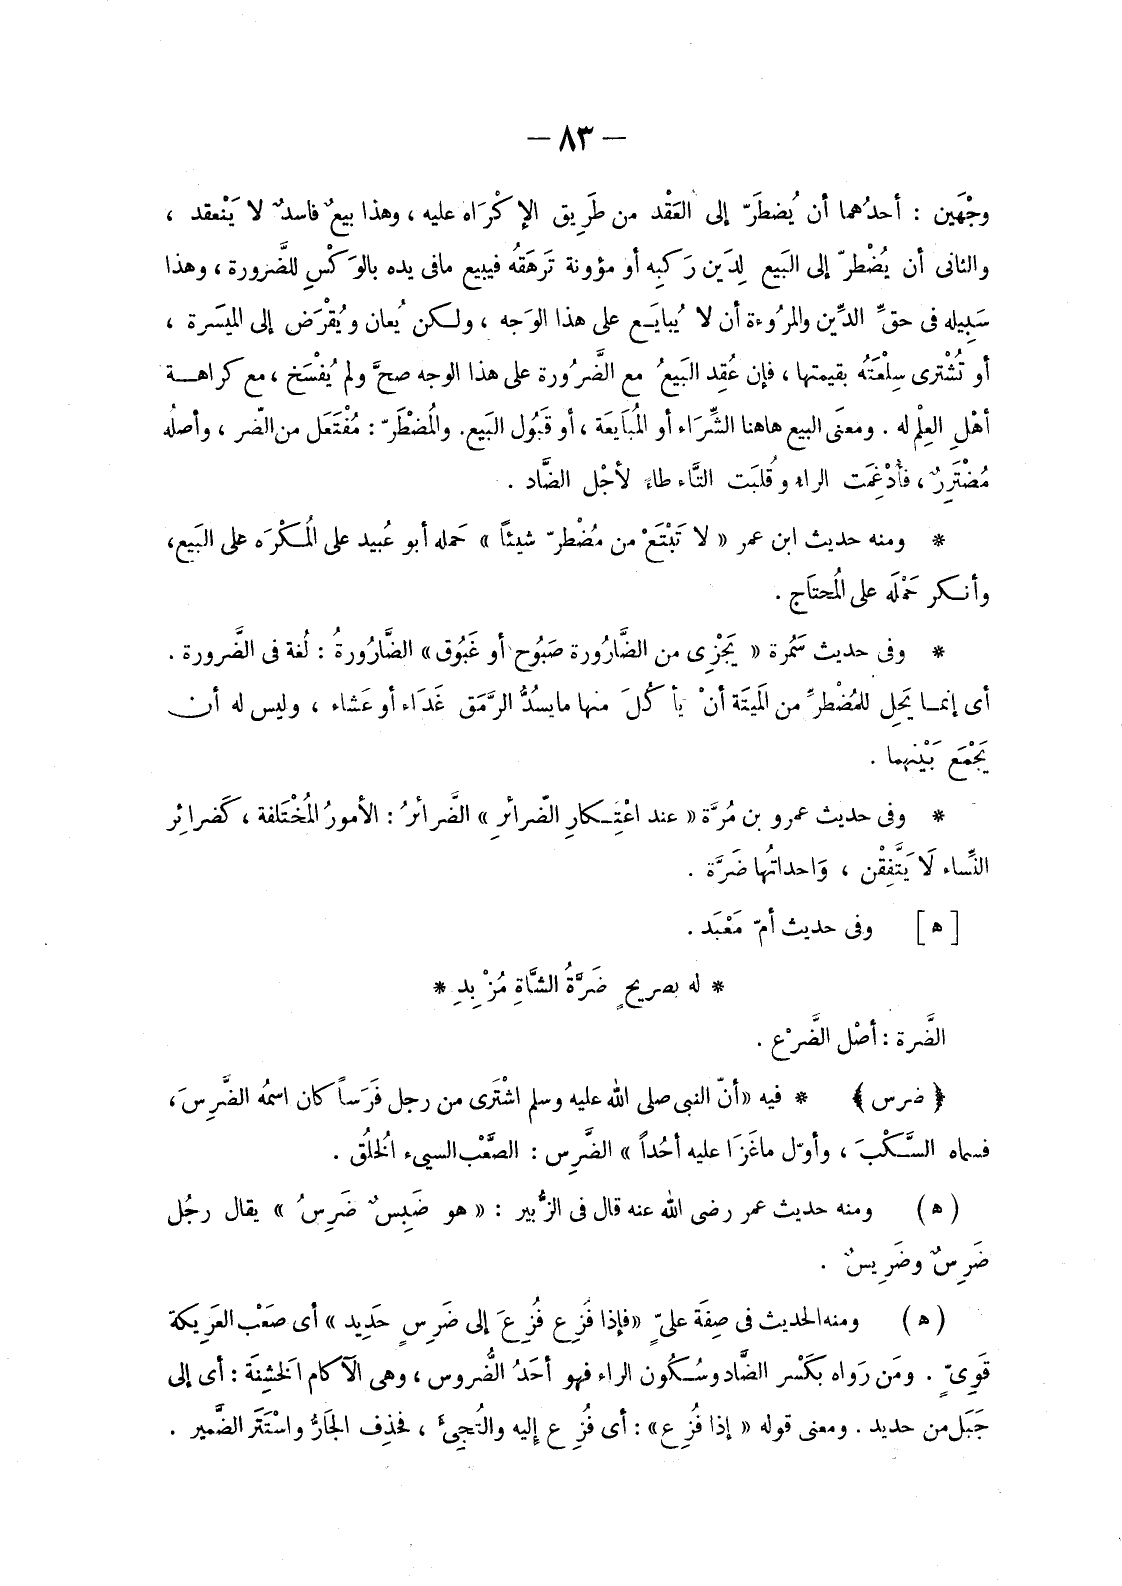 — ٨٣ —
وجْهَين : أحدُهما أن يُضطَرّ إلى العَقْد من طَرِيق الإكْرَاه عليه ، وهذا بيعٌ فاسدٌ لا يَنْعقد ،
والثانى أن يُضْطرّ إلى البَيع لِدَين رَكبِه أو مؤونة تَرهَقهُ فيبيع مافى يده بالوَكْسِ للضَّرورة ، وهذا
سَبِيله فى حقِّ الدِّين والمرُوءة أن لا يُبايَع على هذا الوَجه ، ولكن يُعان ويُقْرَض إلى الميَسرة ،
أو تُشْترى سِلْعَتُه بقيمتها ، فإن عُقِد البَيعُ مع الضَّرُورة على هذا الوجه صحَّ ولم يُفْسَخ ، مع كراهة
أهْلِ العِلْم له . ومعنَى البيع هاهنا الشِّرَاء أو المُبَايَعَة ، أو قَبُول البَيع. والمُضْطَرّ : مُفْتَعَل من الضّر ، وأصلُه
مُضْتَرِرٌ ، فأُدْغِمَت الراء وقُلبَت التَّاء طاءً لأجْل الضَّاد .
* ومنه حديث ابن عمر « لا تَبْتَعْ من مُضْطرّ شيئاً » حَمله أبو عُبيد على المُكْرَه على البَيع،
وأنكر حَمْلَه على المُحتاَج .
* وفى حديث سَمُرة « يَجْزِى من الضَّارُورة صَبُوح أو غَبُوق » الضَّارُورةُ : لُغة فى الضَّرورة .
أى إنما يَحِل للمُضْطرِّ من المَيتَة أنْ يأكُلَ منها مايسُدُّ الرَّمَق غَدَاء أو عَشاء ، وليس له أن
يَجْمَع بَيْنهما .
* وفى حديث عمرو بن مُرَّة « عند اعْتِكارِ الضّرائرِ » الضَّرائرُ : الأمورُ المُخْتَلفة ، كَضرائِر
النِّساء لَا يَتَّفِقْن ، وَاحداتُها ضَرَّة .
[ ه ] وفى حديث أمّ مَعْبَد .
* له بصريحٍ ضَرَّةُ الشَّاةِ مُزْبِدِ *
الضَّرة : أصْل الضَّرْع .
﴿ ضرس ﴾ * فيه « أنّ النبى صلى الله عليه وسلم اشْتَرى من رجل فَرَساً كان اسمُه الضَّرِسَ،
فسماه السَّكْبَ ، وأوّل ماغَزَا عليه أحُداً » الضَّرِس : الصَّعْب السيىء الخُلُق .
( ه ) ومنه حديث عمر رضى الله عنه قال فى الزُّبير : « هو ضَبِسٌ ضَرِسُ » يقال رجُل
ضَرِسٌ وضَرِيسٌ .
( ه ) ومنه الحديث فى صِفَة علىّ « فإذا فَزِع فُزِعَ إلى ضَرِسٍ حَدِيد » أى صَعْب العَرِيكة
قَوِىّ . ومَن رَواه بكَسْر الضَّاد وسُكُون الراء فهو أحَدُ الضُّروس ، وهى الآكام الخشِنَة : أى إلى
جَبَل من حديد . ومعنى قوله « إذا فُزِع » : أى فُزِع إليه والتُجِئَ ، فحُذِف الجَارُّ واسْتَتَر الضَّمير .